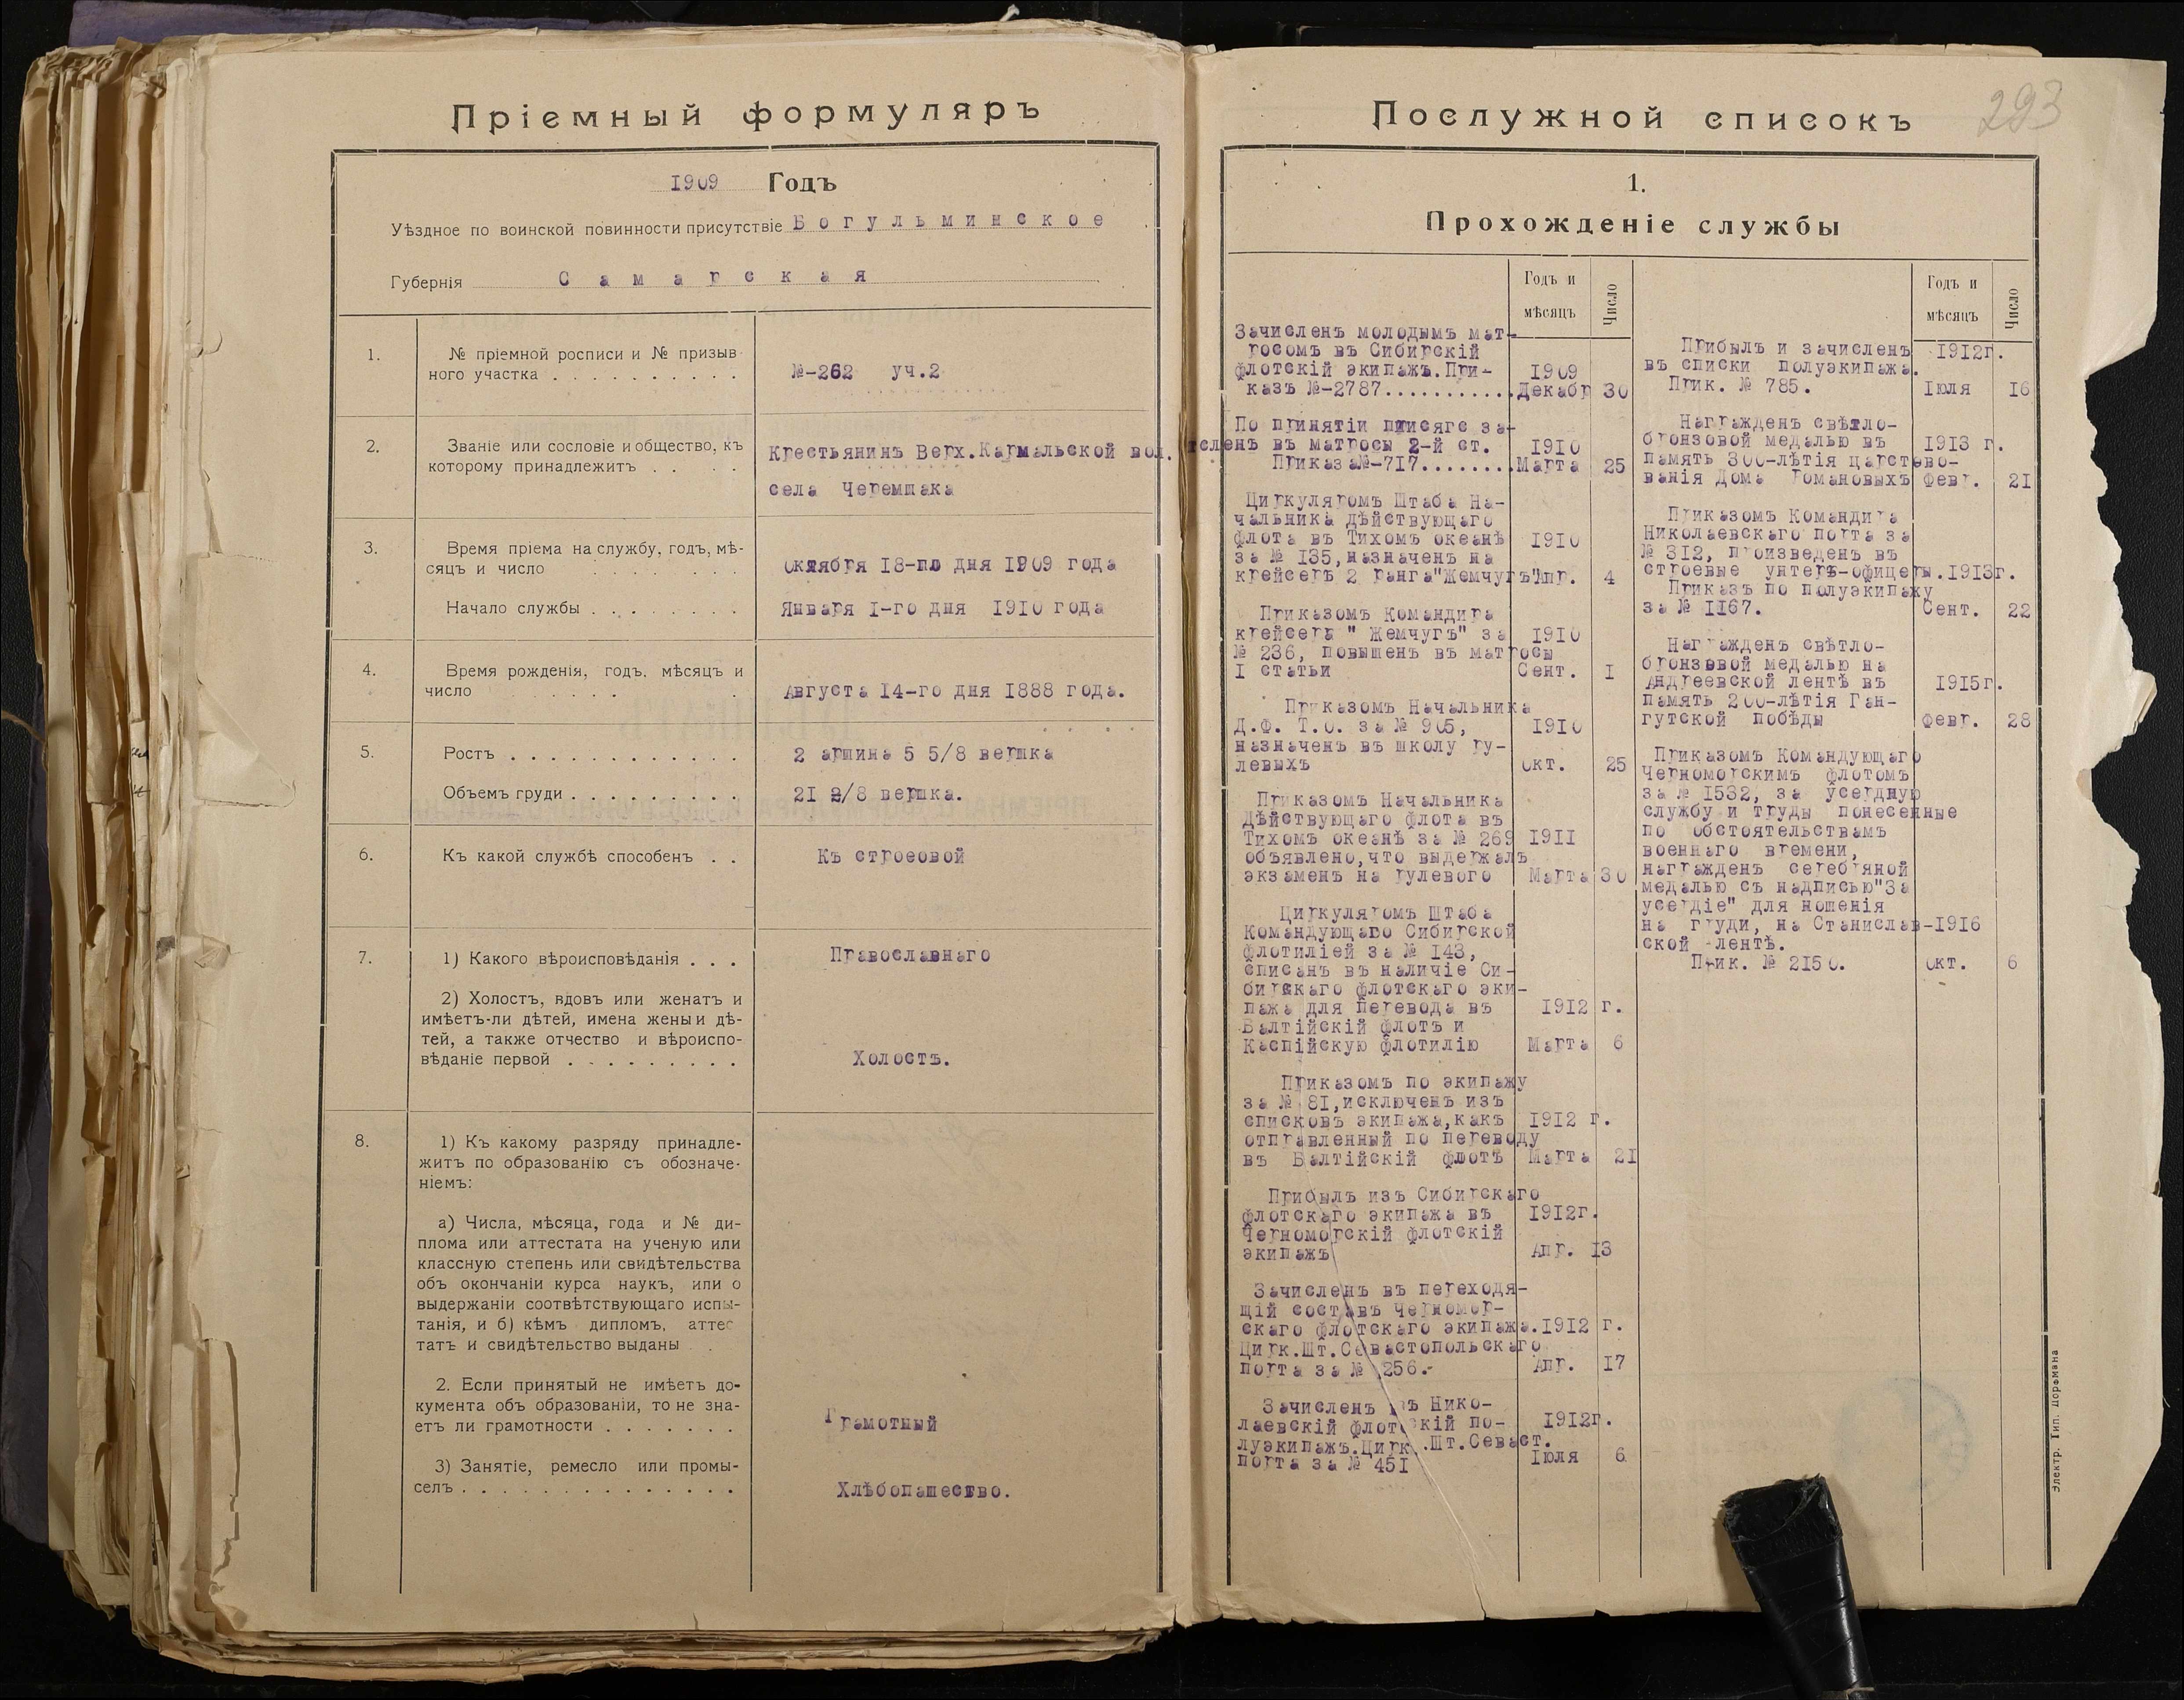 Пріемный формуляръ
1909 Годъ
Уѣздное по воинской повинности присутствіе Богульминское
Губернія Самарская
1. № пріемной росписи и № призыв-
ного участка . . . . . . . . . . №-262 уч.2
2. Званіе или сословіе и общество, къ
которому принадлежитъ . . . . Крестьянинъ Верх.Кармальской вол.
села Черемшака
3. Время пріема на службу, годъ, мѣ-
сяцъ и число Октября 18-го дня 1909 года
Начало службы . . . . . . . . Января I-го дня 1910 года
4. Время рожденія, годъ, мѣсяцъ и
число Августа 14-го дня 1888 года.
5. Ростъ . . . . . . . . . . . . 2 аршина 5 5/8 вершка
Объемъ груди . . . . . . . . . 21 2/8 вершка.
6. Къ какой службѣ способенъ . . Къ строеовой
7. 1) Какого вѣроисповѣданія . . . Православнаго
2) Холостъ, вдовъ или женатъ и
имѣетъ-ли дѣтей, имена жены и дѣ-
тей, а также отчество и вѣроиспо-
вѣданіе первой . . . . . . . . . Холостъ.
8. 1) Къ какому разряду принадле-
житъ по образованію съ обозначе-
ніемъ:
а) Числа, мѣсяца, года и № ди-
плома или аттестата на ученую или
классную степень или свидѣтельства
объ окончаніи курса наукъ, или о
выдержаніи соотвѣтствующаго испы-
танія, и б) кѣмъ дипломъ, аттес
татъ и свидѣтельство выданы
2. Если принятый не имѣетъ до-
кумента объ образованіи, то не зна-
етъ ли грамотности . . . . . . . Грамотный
3) Занятіе, ремесло или промы-
селъ . . . . . . . . . . . . . . Хлѣбопашество.
Послужной списокъ
293
1.
Прохожденіе службы
Годъ и
мѣсяцъ
Число
Зачисленъ молодымъ мат-
росомъ въ Сибирскій
флотскій экипажъ.При- 1909
казъ №-2787...........Декабр 30
По принятіи присяге за-
численъ въ матросы 2-й ст. 1910
Приказ№-717........Марта 25
Циркуляромъ Штаба На-
чальника дѣйствующаго
флота въ Тихомъ океанѣ 1910
за № 135,назначенъ на
крейсеръ 2 ранга"Жемчугъ"Апр. 4
Приказомъ Командира
крейсера " Жемчугъ" за 1910
№ 236, повышенъ въ матросы
I статьи Сент. I
Приказомъ Начальника
Д.Ф. Т.О. за № 905, 1910
назначенъ въ школу ру-
левыхъ Окт. 25
Приказомъ Начальника
Дѣйствующаго флота въ
Тихомъ океанѣ за № 269 1911
объявлено,что выдержалъ
экзаменъ на рулевого Марта 30
Циркуляромъ Штаба
Командующаго Сибирской
флотиліей за № 143,
списанъ въ наличіе Си-
бирскаго флотскаго эки-
пажа для перевода въ 1912 г.
Балтійскій флотъ и
Каспійскую флотилію Марта 6
Приказомъ по экипажу
за № 81,исключенъ изъ
списковъ экипажа,какъ 1912 г.
отправленный по переводу
въ Балтійскій флотъ Марта 21
Прибылъ изъ Сибирскаго
флотскаго экипажа въ 1912г.
Черноморскій флотскій
экипажъ Апр. 13
Зачисленъ въ переходя-
щій составъ Черномор-
скаго флотскаго экипажа.1912 г.
Цирк.Шт.Севастопольскаго
порта за № 256.- Апр. 17
Зачисленъ въ Нико-
лаевскій флотскій по- 1912г.
луэкипажъ.Цирк.Шт.Севаст.
порта за № 451 Іюля 6
Годъ и
мѣсяцъ
Число
Прибылъ и зачисленъ 1912г.
въ списки полуэкипажа.
Прик. № 785. Іюля 16
Награжденъ свѣтло-
бронзовой медалью въ 1913 г.
память 300-лѣтія царство-
ванія Дома Романовыхъ Февр. 21
Приказомъ Командира
Николаевскаго порта за
№ 312, произведенъ въ
строевые унтеръ-офицеры.1913г.
Приказъ по полуэкипажу
за № 1167. Сент. 22
Награжденъ свѣтло-
бронзовой медалью на
Андреевской лентѣ въ 1915г.
память 200-лѣтія Ган-
гутской побѣды Февр. 28
Приказомъ Командующаго
Черноморскимъ флотомъ
за № 1532, за усердную
службу и труды понесенные
по обстоятельствамъ
военнаго времени,
награжденъ серебряной
медалью съ надписью"За
усердіе" для ношенія
на груди, на Станислав-1916
ской лентѣ.
Прик. № 2150. Окт. 6
Электр. Тип. Дормана